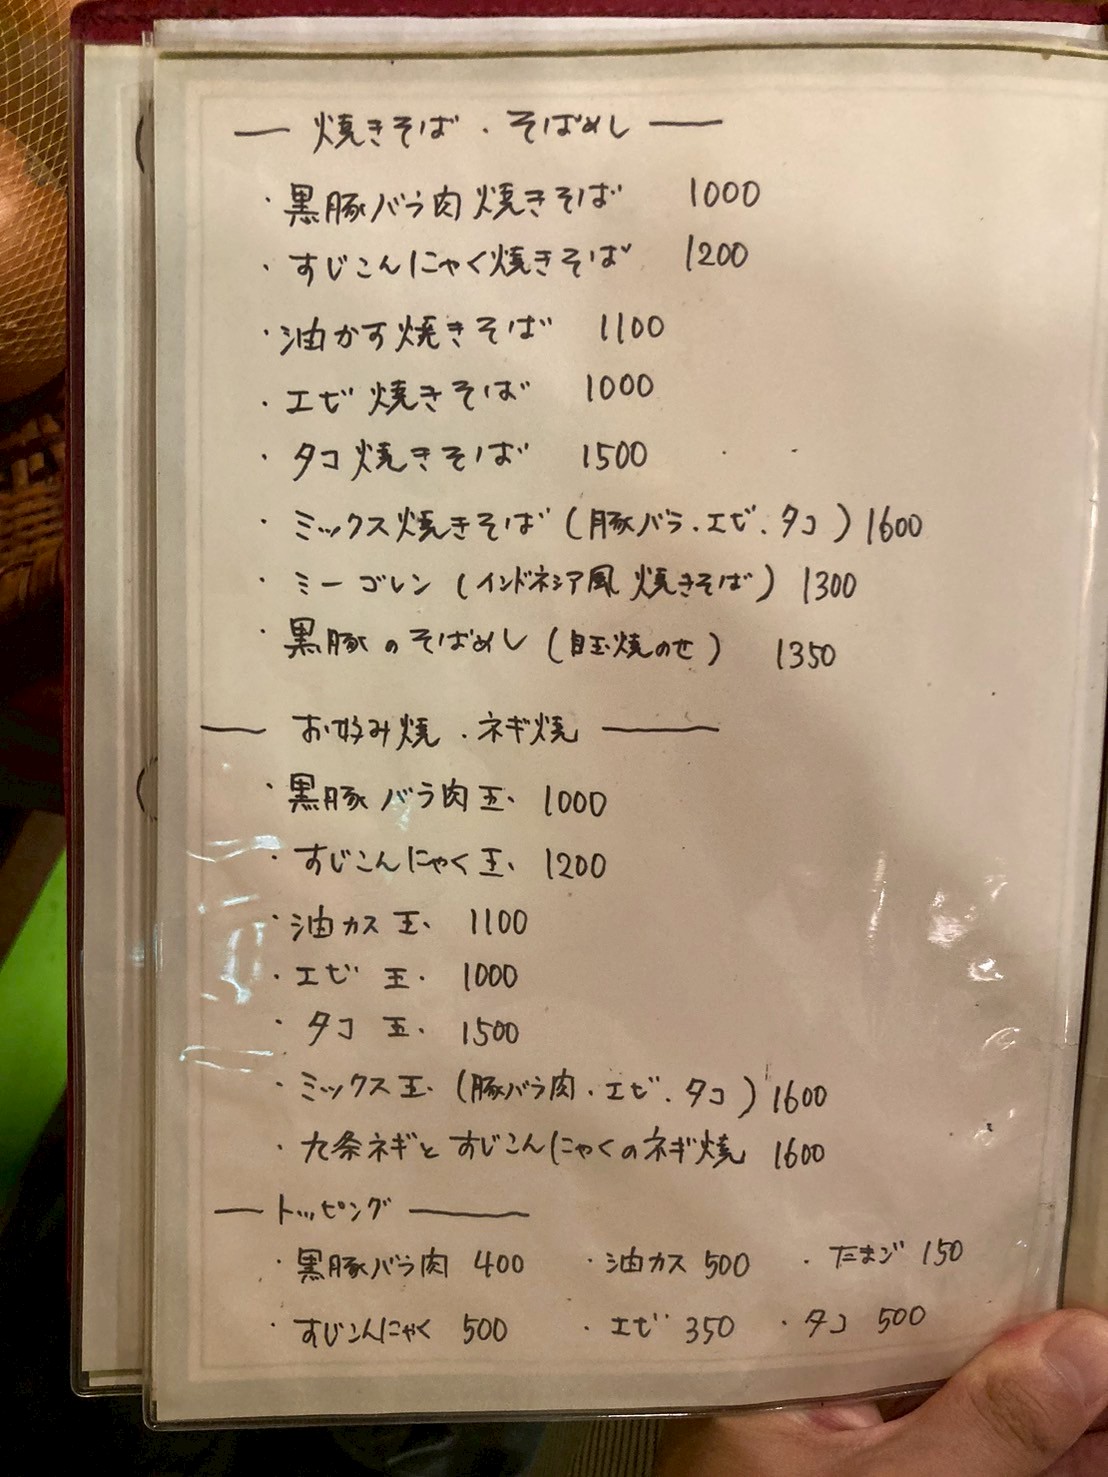 — 焼きそば・そばめし —
・黒豚バラ肉焼きそば 1000
・すじこんにゃく焼きそば 1200
・油かす焼きそば 1100
・エビ焼きそば 1000
・タコ焼きそば 1500
・ミックス焼きそば(豚バラ・エビ・タコ) 1600
・ミーゴレン(インドネシア風焼きそば) 1300
・黒豚のそばめし(目玉焼のせ) 1350
— お好み焼・ネギ焼 —
・黒豚バラ肉玉 1000
・すじこんにゃく玉 1200
・油カス玉 1100
・エビ玉 1000
・タコ玉 1500
・ミックス玉(豚バラ肉・エビ・タコ) 1600
・九条ネギとすじこんにゃくのネギ焼 1600
— トッピング —
・黒豚バラ肉 400 ・油カス 500 ・たまご 150
・すじこんにゃく 500 ・エビ 350 ・タコ 500